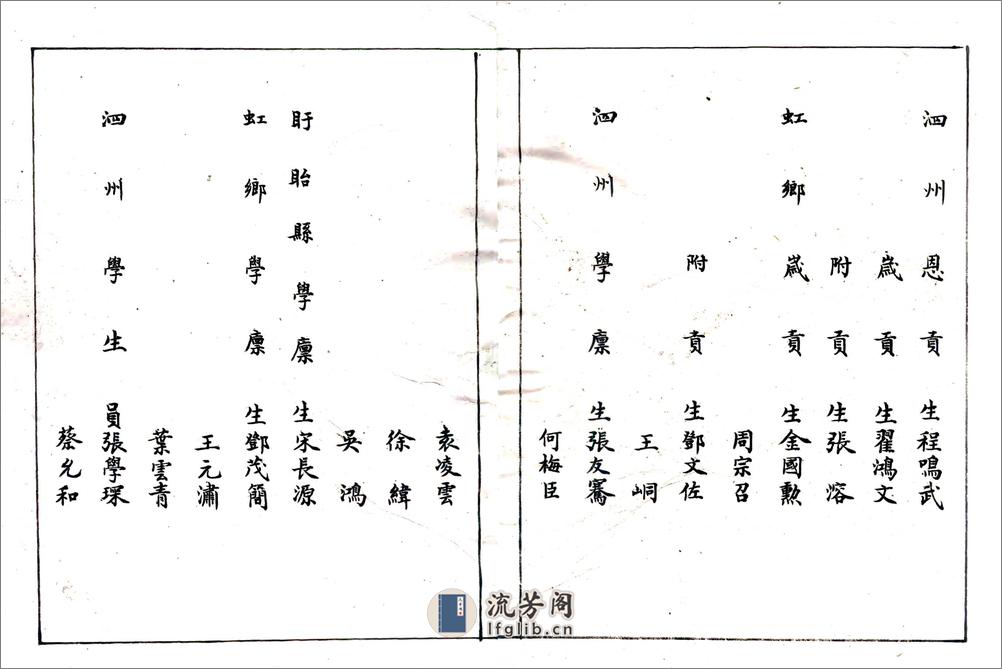 泗州恩貢生程鳴武
歲貢生翟鴻文
附貢生張溶
虹鄉歲貢生金國勲
周宗召
附貢生鄧文佐
王峒
泗州學廩生張友騫
何梅臣
袁凌雲
徐緯
吳鴻
盱眙縣學廩生宋長源
虹鄉學廩生鄧茂簡
王元潚
葉雲青
泗州學生員張學琛
蔡允和
流芳阁
lfglib.cn